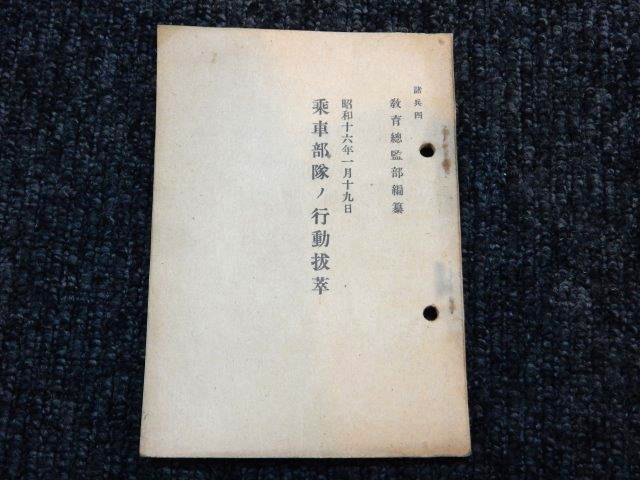 諸兵四
教育總監部編纂
昭和十六年一月十九日
乘車部隊ノ行動拔萃